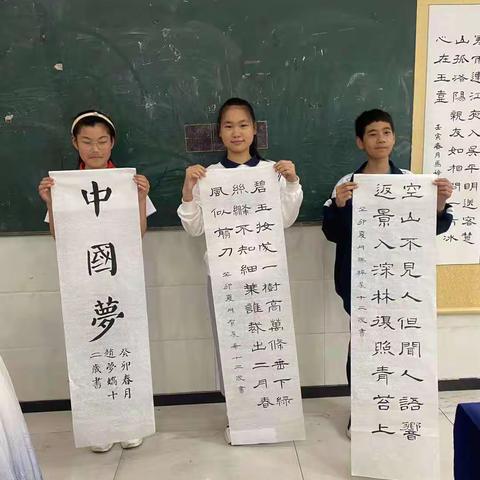 中國夢
癸卯春月
趙夢
二歲書
碧玉妝成一樹高萬條垂下綠
絲絛不知細葉誰裁出二月春
風似剪刀
癸卯夏月 十三歲書
空山不見人但聞人語響
返景入深林復照青苔上
癸卯夏月 年十三歲書
寒雨連江夜入吳平明送客楚
山孤洛陽親友如相問一片冰
心在玉壺
壬寅春月